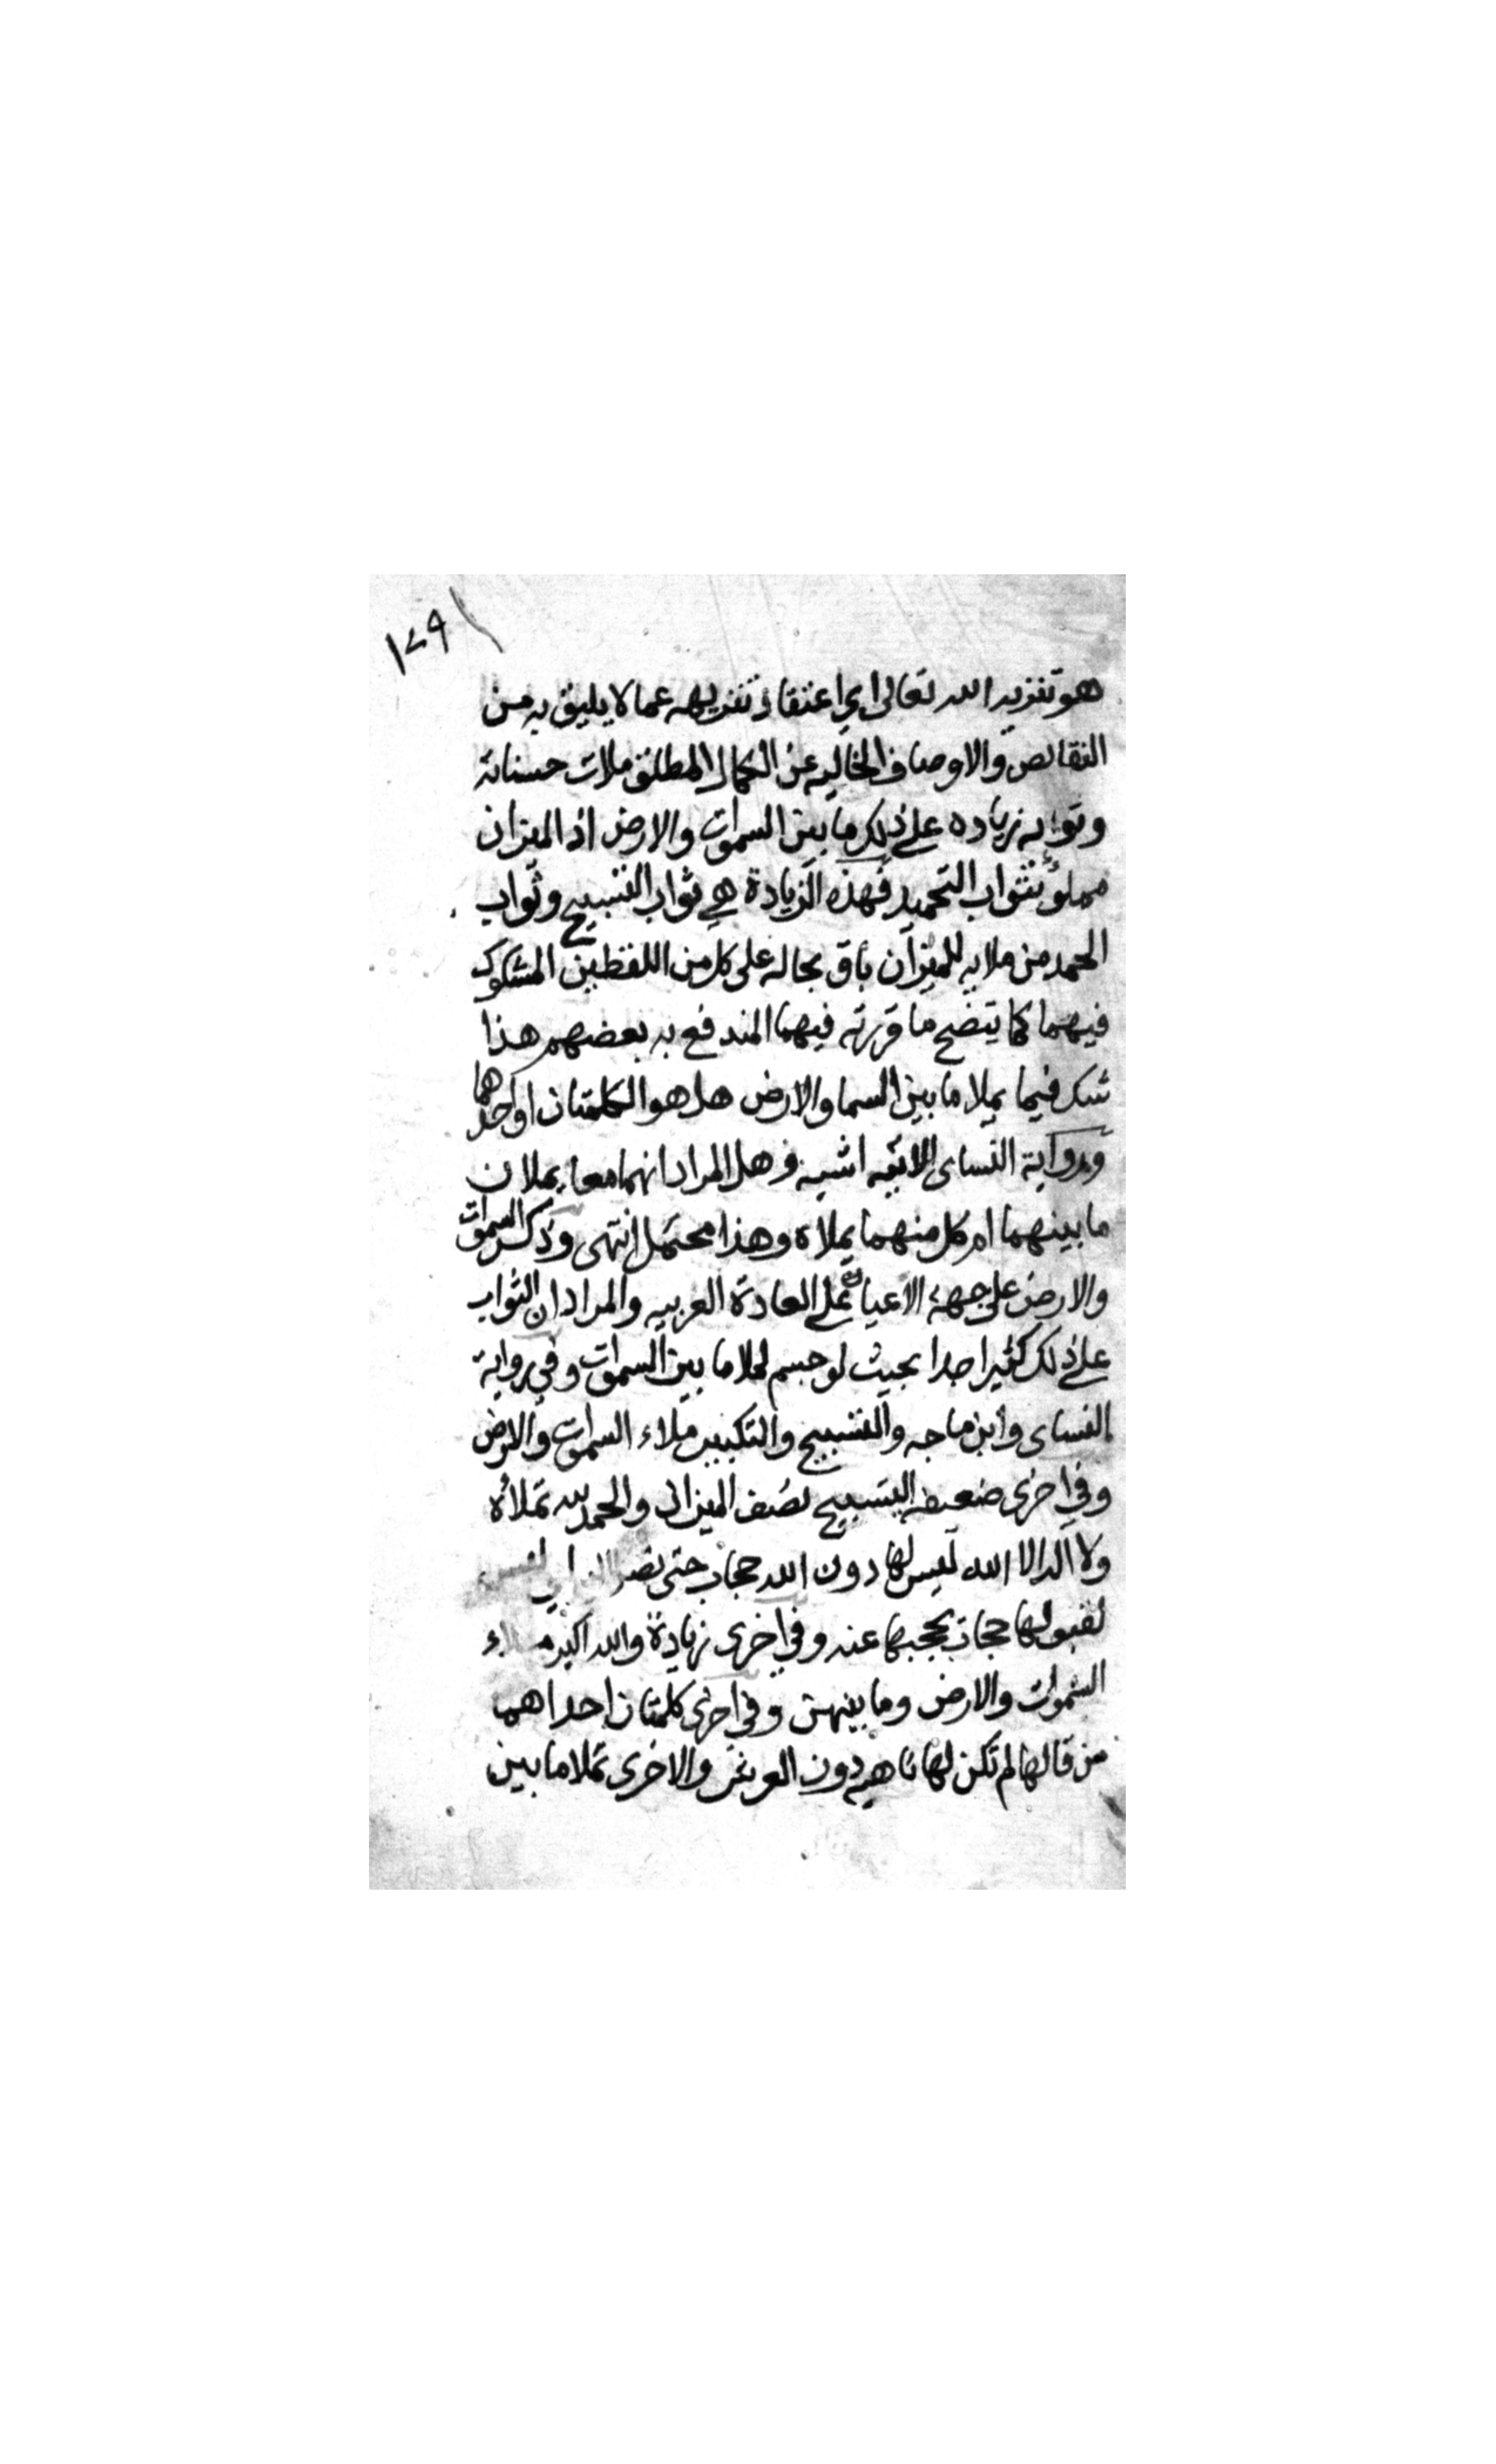 ١٧٩
هو تنزيه الله تعالى اي اعتقاد تنزيهه عما لا يليق به من
النقايص والاوصاف الخاليه عن الكمال المطلق ملات حسناته
وثوابه زياده على ذلك ما بين السموات والارض اذ الميزان
مملؤ بثواب التحميد فهذه الزيادة هي ثواب التسبيح وثواب
الحمد من ملايه للميزان باق بحاله على كل من اللفظين المشكوك
فيهما كما يتضح ما قررته فيهما المندفع به بعضهم هذا
شك فيما يملا ما بين السما والارض هل هو الكلمتان او احدهما
ورواية النساى الاتيه اشبه وهل المراد انهما معا يملان
ما بينهما ام كل منهما يملاه وهذا محتمل انتهى وذكر السموات
والارض على جهة الاعيا على العادة العربيه والمراد ان الثواب
على ذلك كثيرا جدا بحيث لو جسم لملا ما بين السموات وفي رواية
النساى وابن ماجه والتسبيح والتكبير ملاء السموات والارض
وفي اخرى ضعيفه التسبيح نصف الميزان والحمد لله تملاه
ولا اله الا الله ليس لها دون الله حجاب حتى
لقبولها حجاب يحجبها عنه وفي اخرى زيادة والله اكبر ملاء
السموات والارض وما بينهن وفي اخرى كلمتان احداهما
من قالها لم تكن لها ناهيه دون العرش والاخرى تملا ما بين